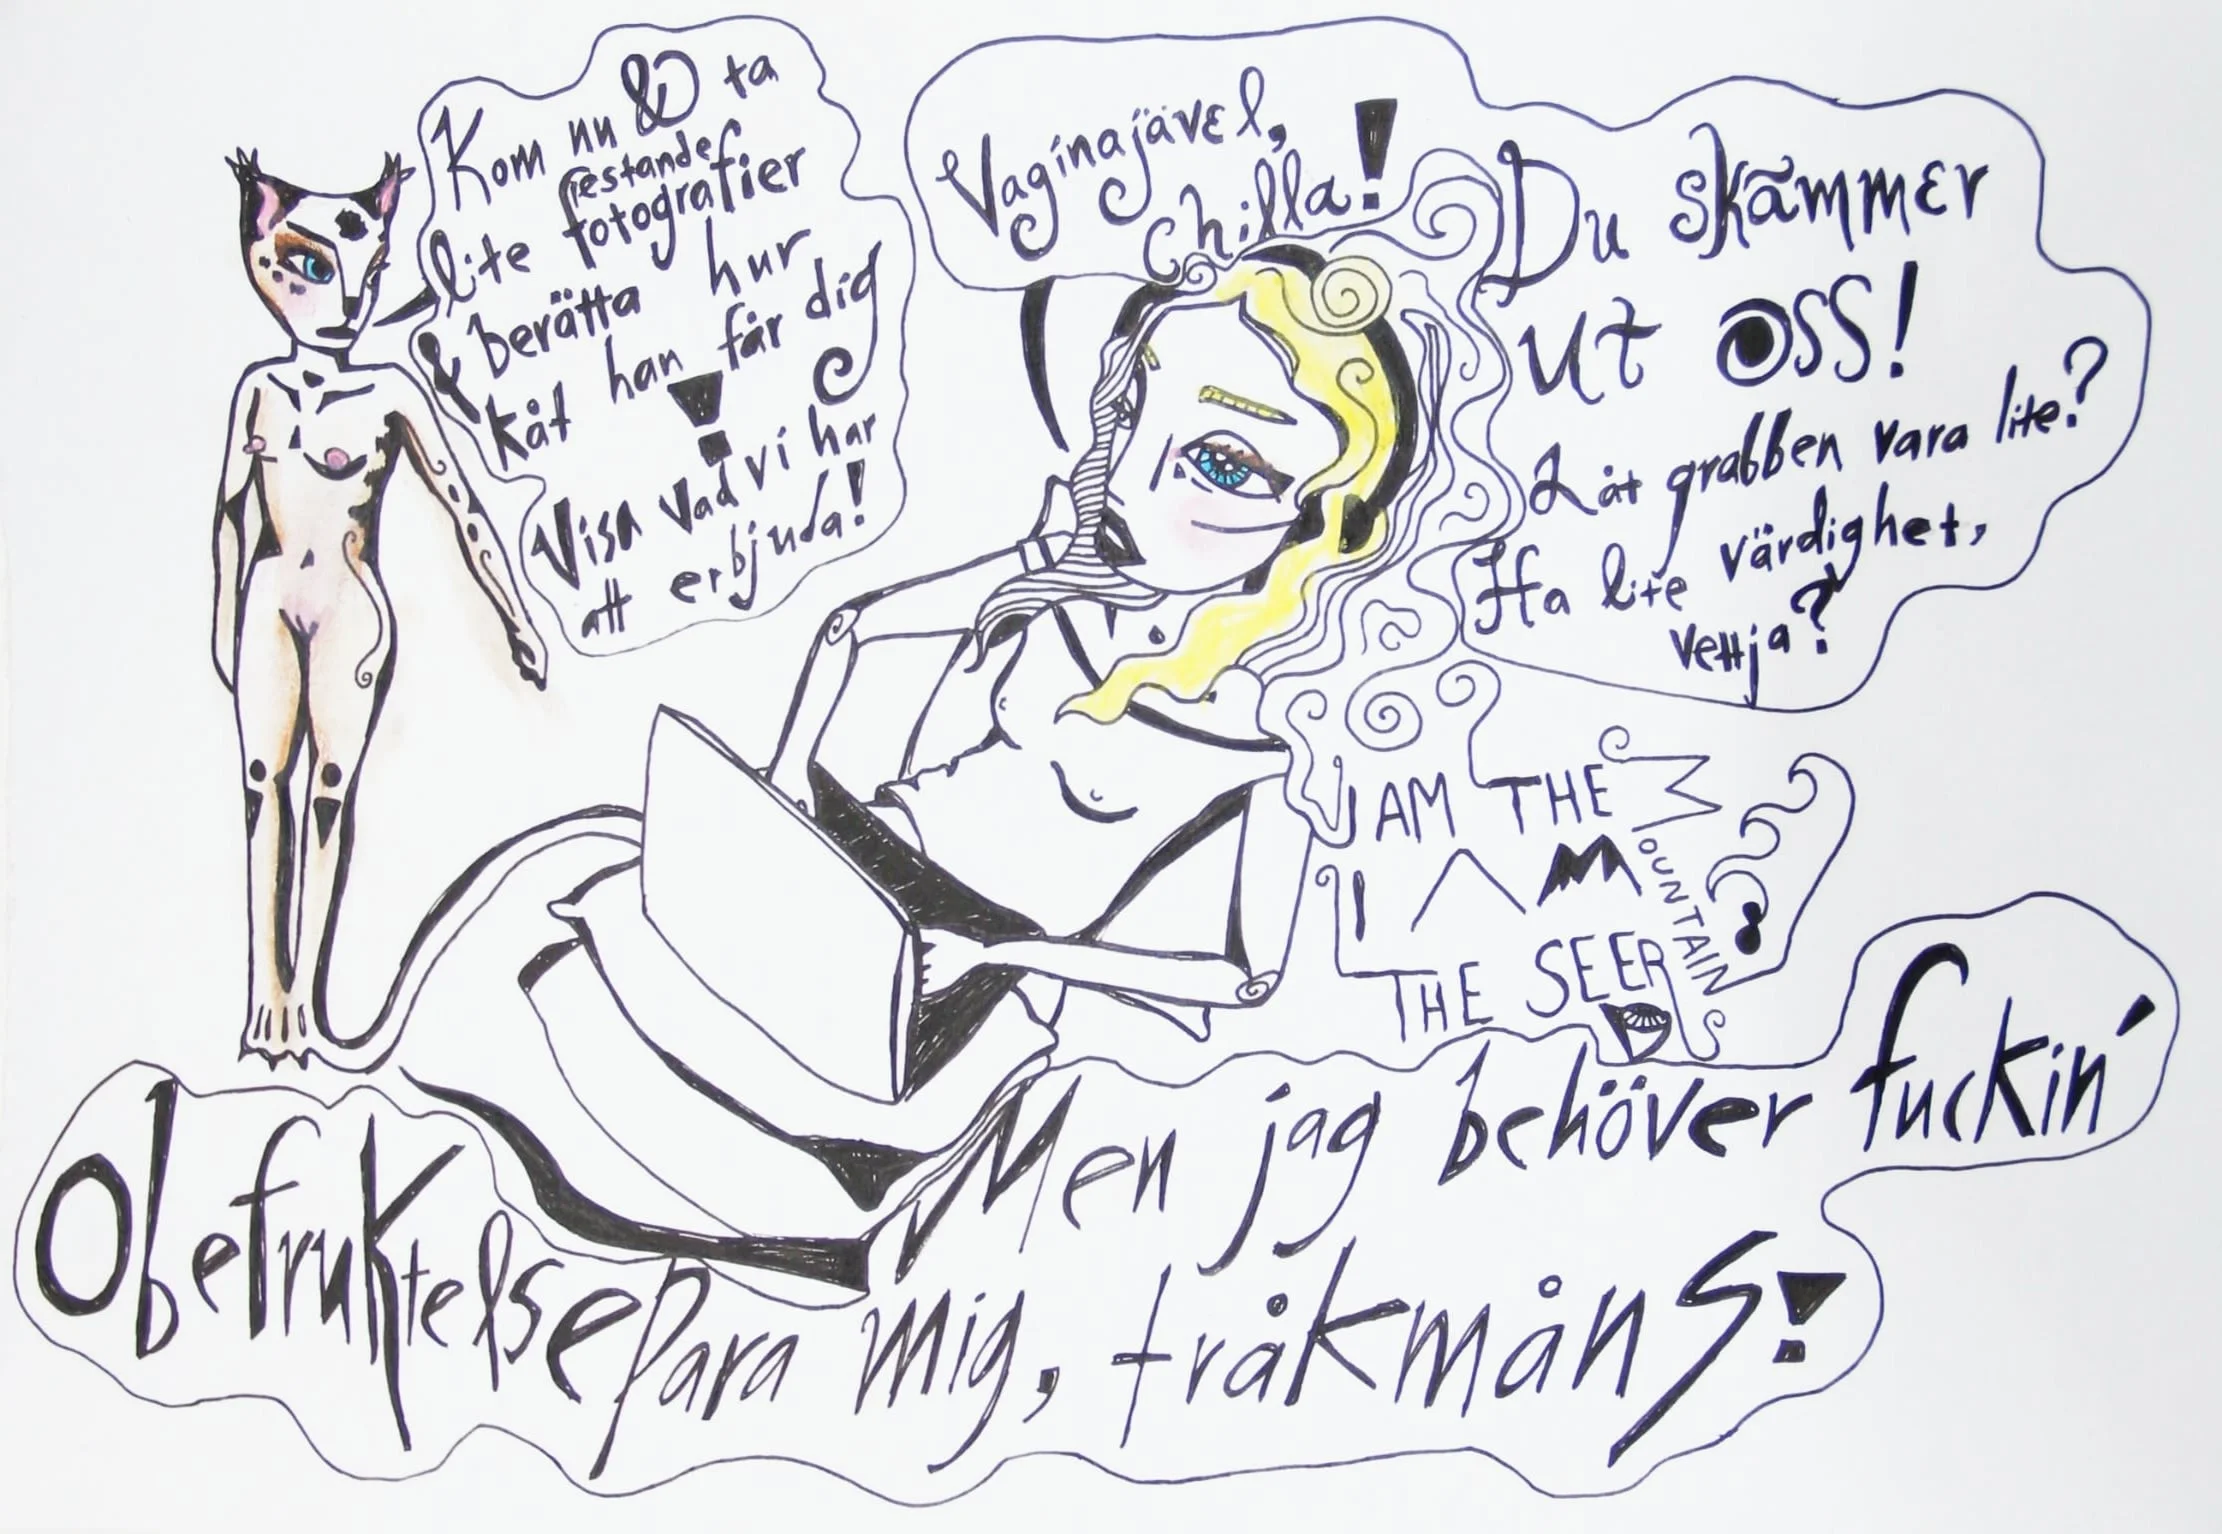 Kom nu & ta
lite frestande
fotografier
& berätta hur
kåt han får dig!
Visa vad vi har
att erbjuda!
Vaginajävel,
chilla!
Du skämmer
ut oss!
Låt grabben vara lite?
Ha lite värdighet,
vettja?
I AM THE
MOUNTAIN
I AM
THE SEER
Men jag behöver fuckin'
Obefruktelsepara mig, tråkmåns!